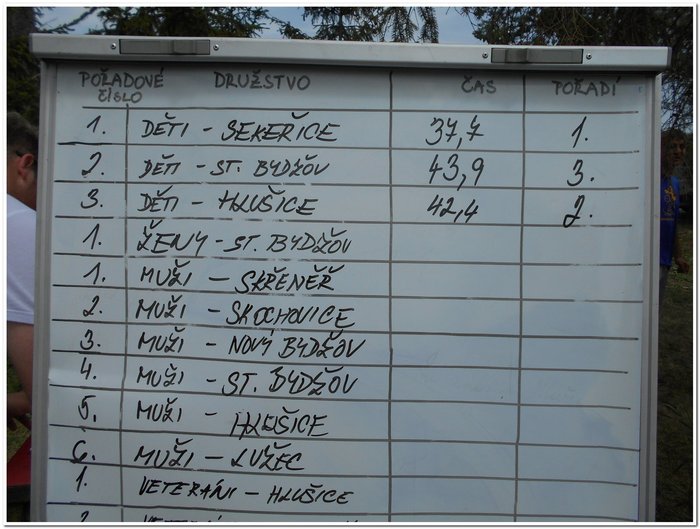 POŘADOVÉ ČÍSLO DRUŽSTVO ČAS POŘADÍ
1. DĚTI - SEKEŘICE 37,7 1.
2. DĚTI - ST. BYDŽOV 43,9 3.
3. DĚTI - HLUŠICE 42,4 2.
1. ŽENY - ST. BYDŽOV
1. MUŽI - SKŘENĚŘ
2. MUŽI - SKOCHOVICE
3. MUŽI - NOVÝ BYDŽOV
4. MUŽI - ST. BYDŽOV
5. MUŽI - HLUŠICE
6. MUŽI - LUŽEC
1. VETERÁNI - HLUŠICE